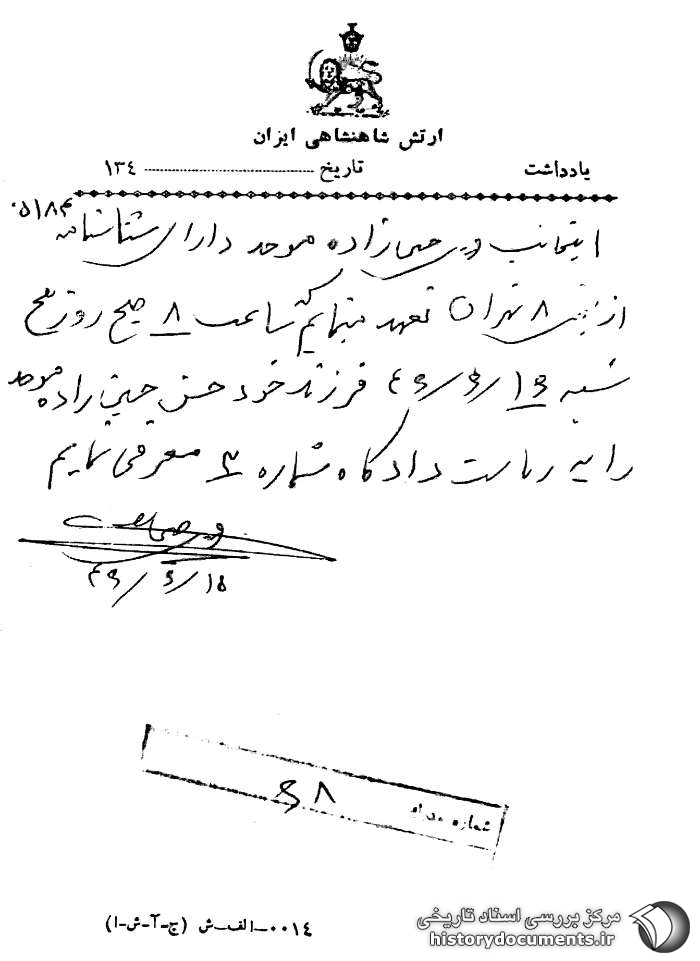 ارتش شاهنشاهی ایران
یادداشت تاریخ ۱۳۴
اینجانب زاده موحد دارای شناسنامه
از بخش ۸ تهران تعهد مینمایم که ساعت ۸ صبح روز پنج
شنبه ۱۶/۶/۴۶ فرزند خود حسن حسین زاده موحد
را به ریاست دادگاه شماره ۴ معرفی نمایم
۱۵/۶/۴۶
شماره
۰۰۱۴-الف-ش (چ-آ-ش-ا)
مرکز بررسی اسناد تاریخی
historydocuments.ir